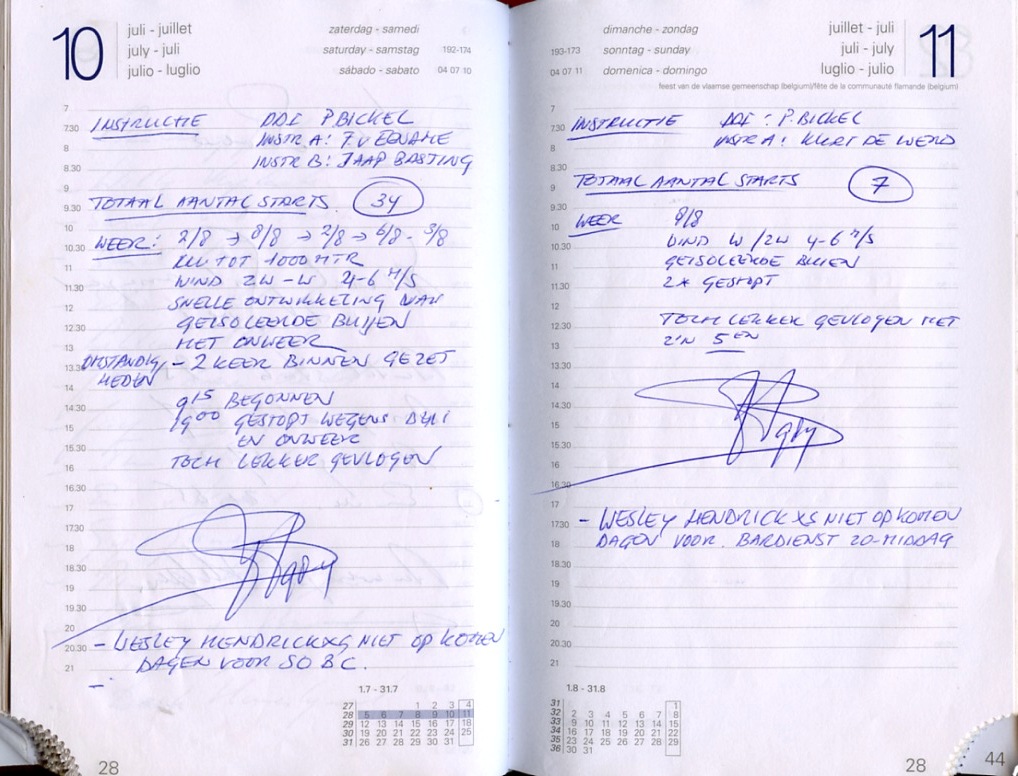 10
juli - juillet
july - juli
julio - luglio
zaterdag - samedi
saturday - samstag 192-174
sábado - sabato 04 07 10
7
7.30 INSTRUCTIE DDI P. BICKEL
8 INSTR A: F. V EENAME
8.30 INSTR B: JAAP BASTING
9
9.30 TOTAAL AANTAL STARTS. 34
10
10.30 WEER: 2/8 → 8/8 → 2/8 → 6/8 - 3/8
11 TOT 1000 MTR
11.30 WIND ZW - W 4-6 M/S
12 SNELLE ONTWIKKELING VAN
12.30 GEISOLEERDE BUIJEN
13 MET ONWEER
13.30 OMSTANDIG- - 2 KEER BINNEN GEZET
14 HEDEN
14.30 9 15 BEGONNEN
15 19 00 GESTOPT WEGENS BUI
15.30 EN ONWEER
16 TOCH LEKKER GEVLOGEN
16.30
17
17.30
18
18.30
19
19.30
20
20.30 - WESLEY HENDRICKXS NIET OP KOMEN
21 DAGEN VOOR SO B C.
-
1.7 - 31.7
27 1 2 3 4
28 5 6 7 8 9 10 11
29 12 13 14 15 16 17 18
30 19 20 21 22 23 24 25
31 26 27 28 29 30 31
28
dimanche - zondag
193-173 sonntag - sunday
04 07 11 domenica - domingo
juillet - juli
juli - july
luglio - julio
11
feest van de vlaamse gemeenschap (belgium)/fête de la communauté flamande (belgium)
7
7.30 INSTRUCTIE DDI : P. BICKEL
8 INSTR A : KURT DE WERD
8.30
9 TOTAAL AANTAL STARTS 7
9.30
10 WEER 8/8
10.30 WIND W / ZW 4-6 M/S
11 GEISOLEERDE BUIEN
11.30 2x GESTOPT
12
12.30 TOCH LEKKER GEVLOGEN MET
13 Z'N 5 EN
13.30
14
14.30
15
15.30
16
16.30
17
17.30 - WESLEY HENDRICKXS NIET OP KOMEN
18 DAGEN VOOR BARDIENST ZO-MIDDAG
18.30
19
19.30
20
20.30
21
1.8 - 31.8
31 1
32 2 3 4 5 6 7 8
33 9 10 11 12 13 14 15
34 16 17 18 19 20 21 22
35 23 24 25 26 27 28 29
36 30 31
28
44